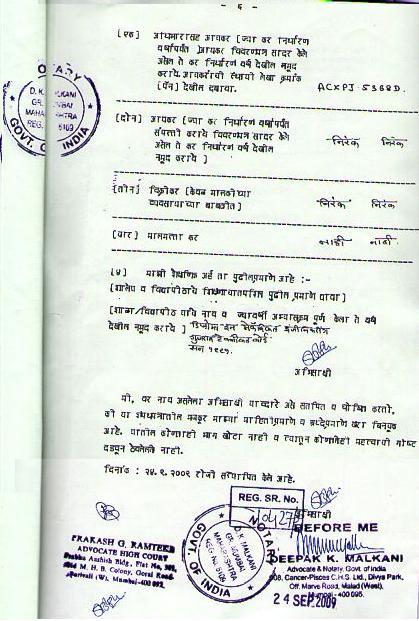 - ६ -
[एक] अधिभारासह आयकर [ज्या कर निर्धारण
वर्षापर्यंत आयकर विवरणपत्र सादर केले
असेल ते कर निर्धारण वर्ष देखील नमूद
करावे आयकराची स्थायी लेखा क्रमांक
[पॅन] देखील दर्शवा. ACXPJ-5368D.
[दोन] आयकर [ज्या कर निर्धारण वर्षापर्यंत
संपत्ती कराचे विवरणपत्र सादर केले
असेल ते कर निर्धारण वर्ष देखील
नमूद करावे ] निरंक निरंक
[तीन] विक्रीकर [केवळ मालकीच्या
व्यवसायाच्या बाबतीत] निरंक निरंक
[चार] मालमत्ता कर नाही नाही
[५] माझी शैक्षणिक अर्हता पुढीलप्रमाणे आहे :-
[शालेय व विद्यापीठाचे शिक्षणाचा तपशिल पुढील प्रमाणे द्यावा]
[शाळा/विद्यापीठ याचे नाव व ज्यावर्षी अभ्यासक्रम पूर्ण केला ते वर्ष
देखील नमूद करावे ] डिप्लोमा इन मेकॅनिकल इंजिनिअरिंग
गुजराथ टेक्नीकल बोर्ड
सन १९८५.
अभिसाक्षी
मी, वर नाव असलेला अभिसाक्षी याव्दारे असे सत्यापित व घोषित करतो,
की या शपथपत्रातील मजकूर माझ्या माहितीप्रमाणे व श्रध्देप्रमाणे खरा व बिनचूक
आहे. यातील कोणताही भाग खोटा नाही व त्यातून कोणतीही महत्वाची गोष्ट
दडवून ठेवलेली नाही.
दिनांक : २४.९.२००९ रोजी सत्यापित केले आहे.
अभिसाक्षी
REG. SR. No.
BEFORE ME
DEEPAK K. MALKANI
Advocate & Notary, Govt. of India
Cancer-Pisces C.H.S. Ltd., Divya Park,
Off. Marve Road, Malad (West),
Mumbai - 400 095.
24 SEP 2009
PRAKASH G. RAMTEKE
ADVOCATE HIGH COURT
Aashish Bldg., Flat No, 301,
M. H. B. Colony, Gorai Road
Borivali (W), Mumbai-400 092.
NOTARY
D. K. MALKANI
GR. MUMBAI
MAHARASHTRA
REG. No. 5109
GOVT. OF INDIA
NOTARY
D. K. MALKANI
GR. MUMBAI
MAHARASHTRA
REG. No. 5109
GOVT. OF INDIA